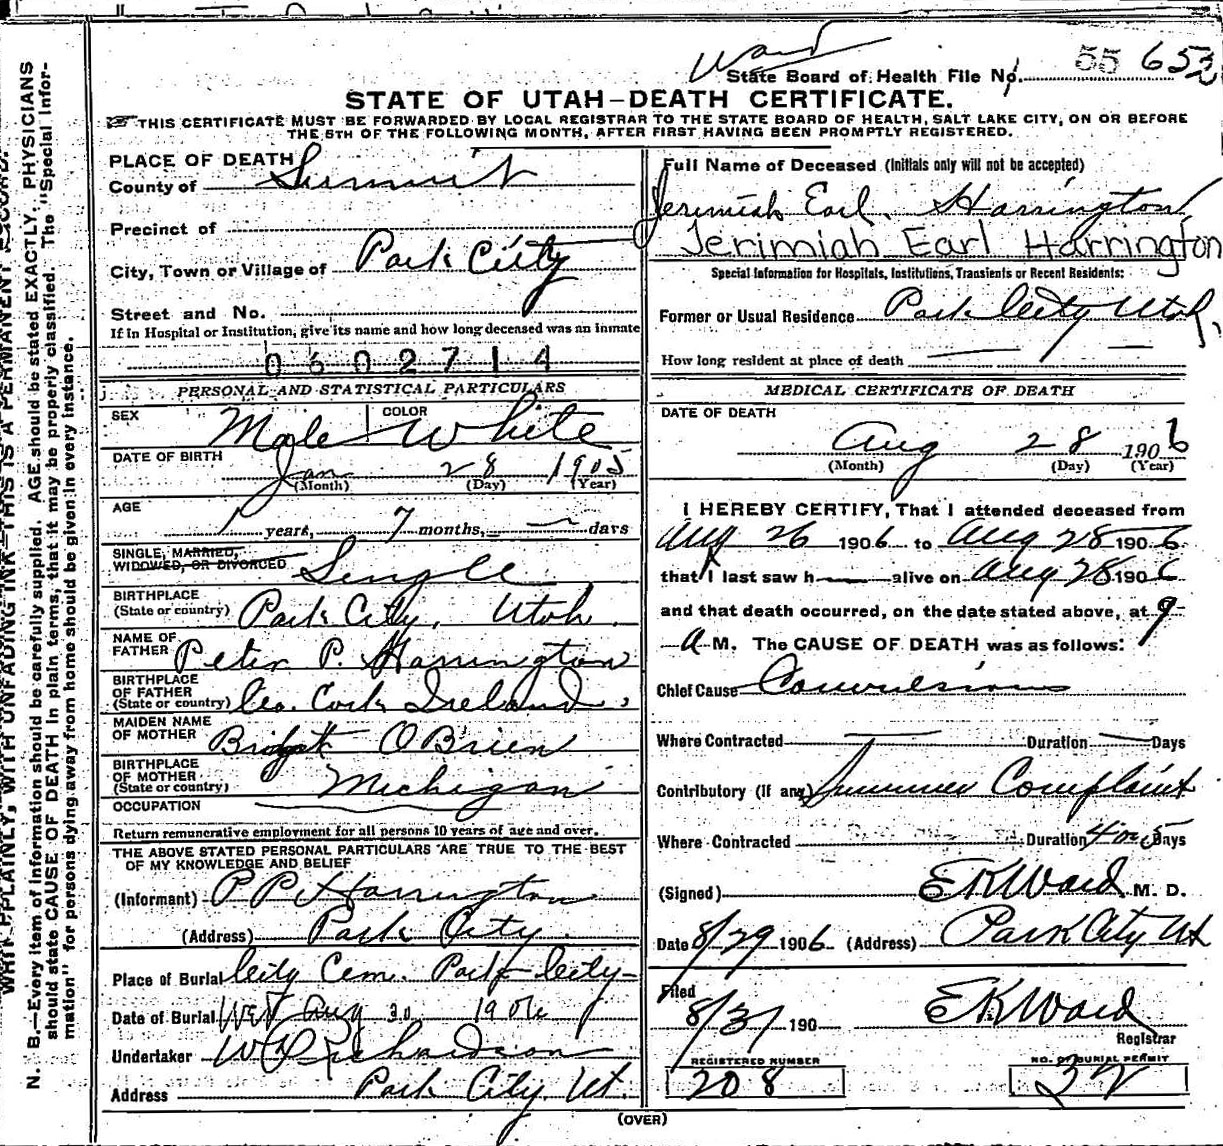 Ward
State Board of Health File No. 55 653
STATE OF UTAH—DEATH CERTIFICATE.
THIS CERTIFICATE MUST BE FORWARDED BY LOCAL REGISTRAR TO THE STATE BOARD OF HEALTH, SALT LAKE CITY, ON OR BEFORE
THE 5TH OF THE FOLLOWING MONTH, AFTER FIRST HAVING BEEN PROMPTLY REGISTERED.
PLACE OF DEATH
County of Summit
Precinct of
City, Town or Village of Park City
Street and No.
If in Hospital or Institution, give its name and how long deceased was an inmate
0602714
PERSONAL AND STATISTICAL PARTICULARS
SEX Male COLOR White
DATE OF BIRTH
Jan 28 1905
(Month) (Day) (Year)
AGE
1 years, 7 months, — days
SINGLE, MARRIED,
WIDOWED, OR DIVORCED Single
BIRTHPLACE
(State or country) Park City, Utah.
NAME OF
FATHER Peter P. Harrington
BIRTHPLACE
OF FATHER
(State or country) Co. Cork Ireland,
MAIDEN NAME
OF MOTHER Bridget OBrien
BIRTHPLACE
OF MOTHER
(State or country) Michigan
OCCUPATION
Return remunerative employment for all persons 10 years of age and over.
THE ABOVE STATED PERSONAL PARTICULARS ARE TRUE TO THE BEST
OF MY KNOWLEDGE AND BELIEF
(Informant) P P Harrington
(Address) Park City
Place of Burial City Cem. Park City
Date of Burial Wed Aug 30 1906
Undertaker Richardson
Address Park City Ut.
Full Name of Deceased (Initials only will not be accepted)
Jerimiah Earl. Harrington
Jerimiah Earl Harrington
Special Information for Hospitals, Institutions, Transients or Recent Residents:
Former or Usual Residence Park City Utah,
How long resident at place of death —
MEDICAL CERTIFICATE OF DEATH
DATE OF DEATH
Aug 28 1906
(Month) (Day) (Year)
I HEREBY CERTIFY, That I attended deceased from
Aug 26 1906 to Aug 28 1906
that I last saw h— alive on Aug 28 1906
and that death occurred, on the date stated above, at 9
A M. The CAUSE OF DEATH was as follows:
Chief Cause Convulsions
Where Contracted — Duration — Days
Contributory (if any) Summer Complaint
Where Contracted Duration 4 or 5 Days
(Signed) EKWard M. D.
Date 8/29 1906 (Address) Park City Ut
Filed
8/31 190 EKWard
Registrar
REGISTERED NUMBER
208
NO. OF BURIAL PERMIT
32
(OVER)
N. B.—Every item of information should be carefully supplied. AGE should be stated EXACTLY. PHYSICIANS
should state CAUSE OF DEATH in plain terms, that it may be properly classified. The "Special Infor-
mation" for persons dying away from home should be given in every instance.
WRITE PLAINLY, WITH UNFADING INK—THIS IS A PERMANENT RECORD.